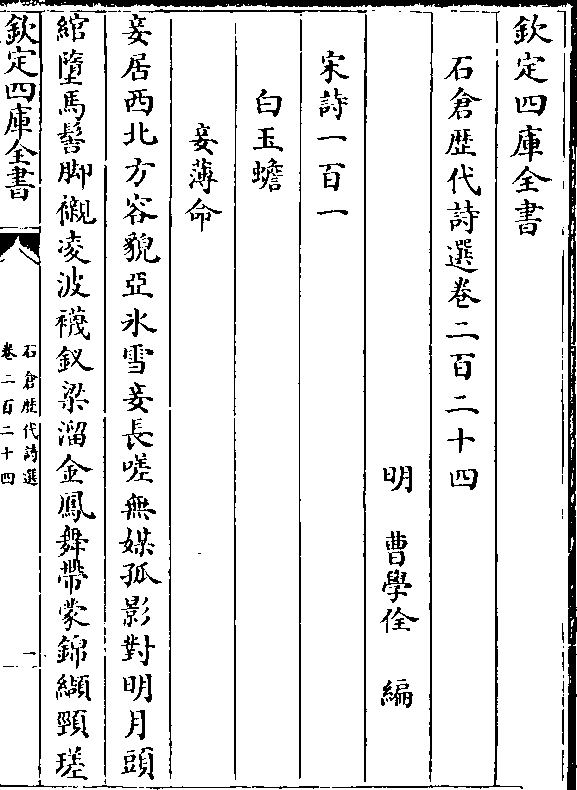 欽定四庫全書
石倉歴代詩選卷二百二十四
明 曹學佺 編
宋詩一百一
白玉蟾
妾薄命
妾居西北方容貌亞氷雪妾長嗟無媒孤影對明月頭
綰墮馬髻脚襯凌波襪釵梁溜金鳳舞帶蒙錦纈頸瑳
欽定四庫全書
石倉歴代詩選
卷二百二十四
一